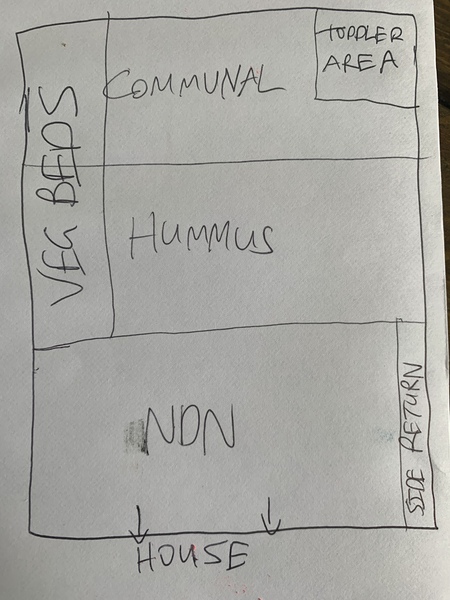 TODDLER
AREA
COMMUNAL
VEG BEDS
HUMMUS
NDN
SIDE RETURN
HOUSE